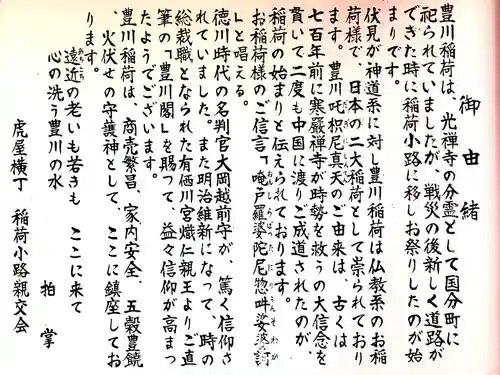 御由緒
豊川稲荷は、光禅寺の分霊として国分町に
祀られていましたが、戦災の後新しく道路が
できた時に稲荷小路に移しお祭りしたのが始
まりです。
伏見が神道系に対し豊川稲荷は仏教系のお稲
荷様で、日本の二大稲荷として崇られており
ます。豊川吒枳尼真天のご由来は、古くは
七百年前に寒巖禅寺が時勢を救うの大信念を
貫いて二度も中国に渡りご成道されたのが、
稲荷の始まりと伝えられております。
お稲荷様のご信言「唵尸羅婆陀尼惣吽娑婆訶
」と唱える。
徳川時代の名判官大岡越前守が、篤く信仰さ
れていました。また明治維新になって、時の
総裁職となられた有栖川宮熾仁親王よりご直
筆の「豊川閣」を賜って、益々信仰が高まっ
たようでございます。
豊川稲荷は、商売繁昌、家内安全、五穀豊饒
、火伏せの守護神として、ここに鎮座してお
ります。
遠近の老いも若きも ここに来て
心の洗う豊川の水
柏掌
虎屋横丁 稲荷小路親交会